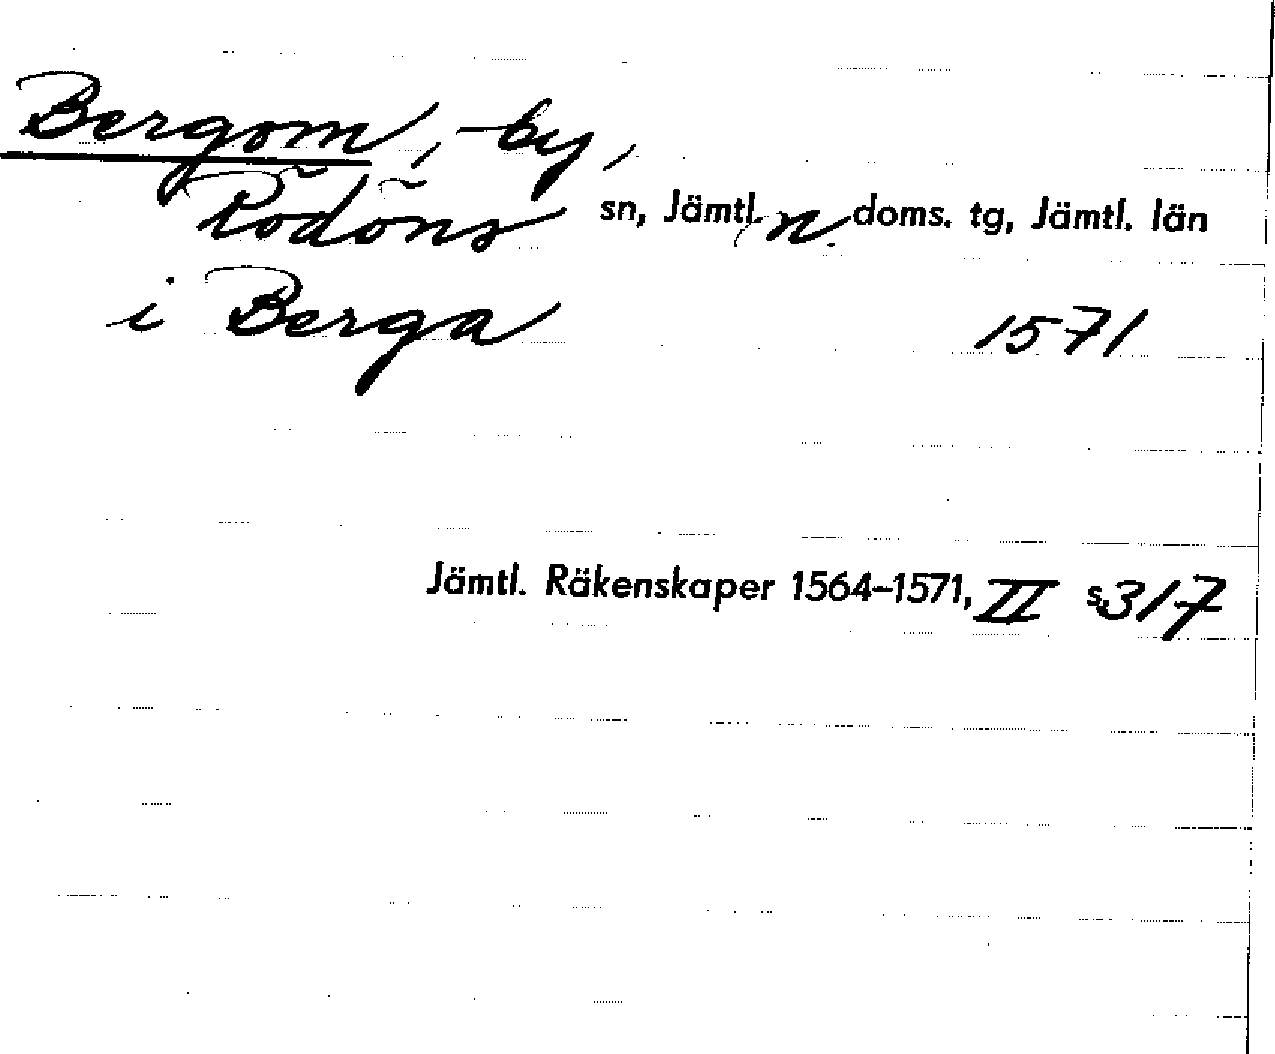 Bergom, by,
Rödöns sn, Jämtl. n. doms. tg, Jämtl. län
i Berga 1571
Jämtl. Räkenskaper 1564-1571, II s. 317